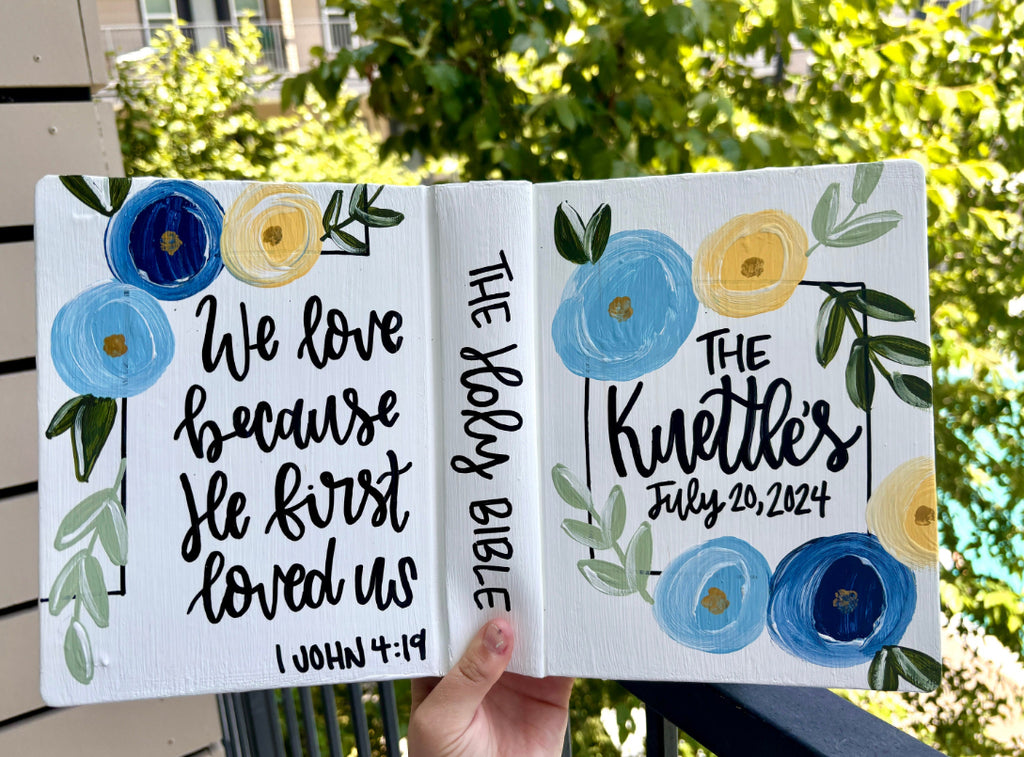 We love
because
He first
loved us
1 JOHN 4:19
THE Holy BIBLE
THE
Knettle's
July 20, 2024